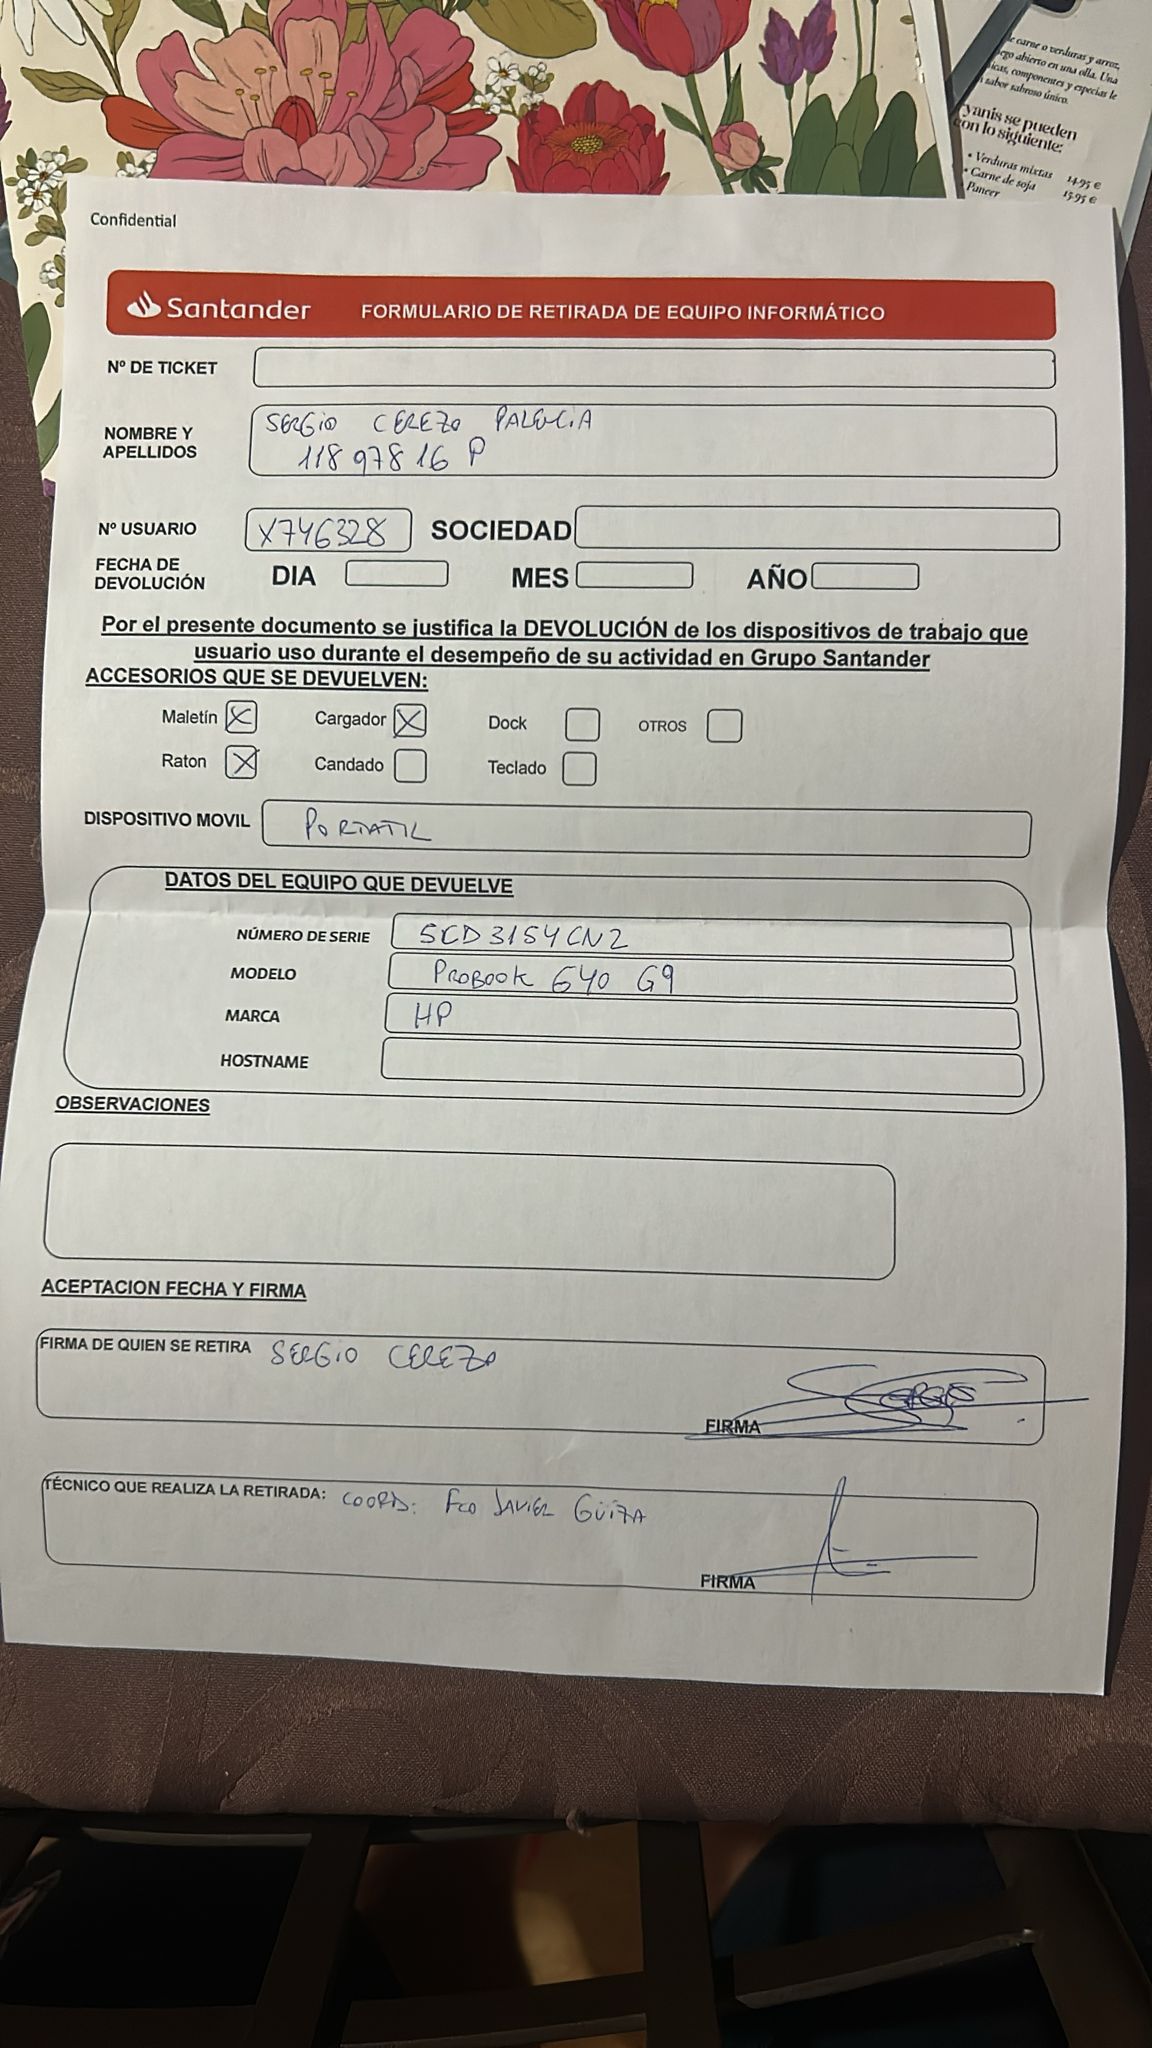 le carne o verduras y arroz,
ego abierto en una olla. Una
icas, componentes y especias le
sabor sabroso único.
yanis se pueden
con lo siguiente:
• Verduras mixtas 14,95 €
• Carne de soja 15,95 €
Paneer
Confidential
Santander FORMULARIO DE RETIRADA DE EQUIPO INFORMÁTICO
Nº DE TICKET
NOMBRE Y APELLIDOS SERGIO CEREZO PALENCIA
11897816 P
Nº USUARIO X746328 SOCIEDAD
FECHA DE DEVOLUCIÓN DIA MES AÑO
Por el presente documento se justifica la DEVOLUCIÓN de los dispositivos de trabajo que
usuario uso durante el desempeño de su actividad en Grupo Santander
ACCESORIOS QUE SE DEVUELVEN:
Maletín X Cargador X Dock OTROS
Raton X Candado Teclado
DISPOSITIVO MOVIL PORTATIL
DATOS DEL EQUIPO QUE DEVUELVE
NÚMERO DE SERIE 5CD3154CN2
MODELO PROBOOK 640 G9
MARCA HP
HOSTNAME
OBSERVACIONES
ACEPTACION FECHA Y FIRMA
FIRMA DE QUIEN SE RETIRA SERGIO CEREZO
FIRMA
TÉCNICO QUE REALIZA LA RETIRADA: COORD: Fco JAVIER GÜIZA
FIRMA